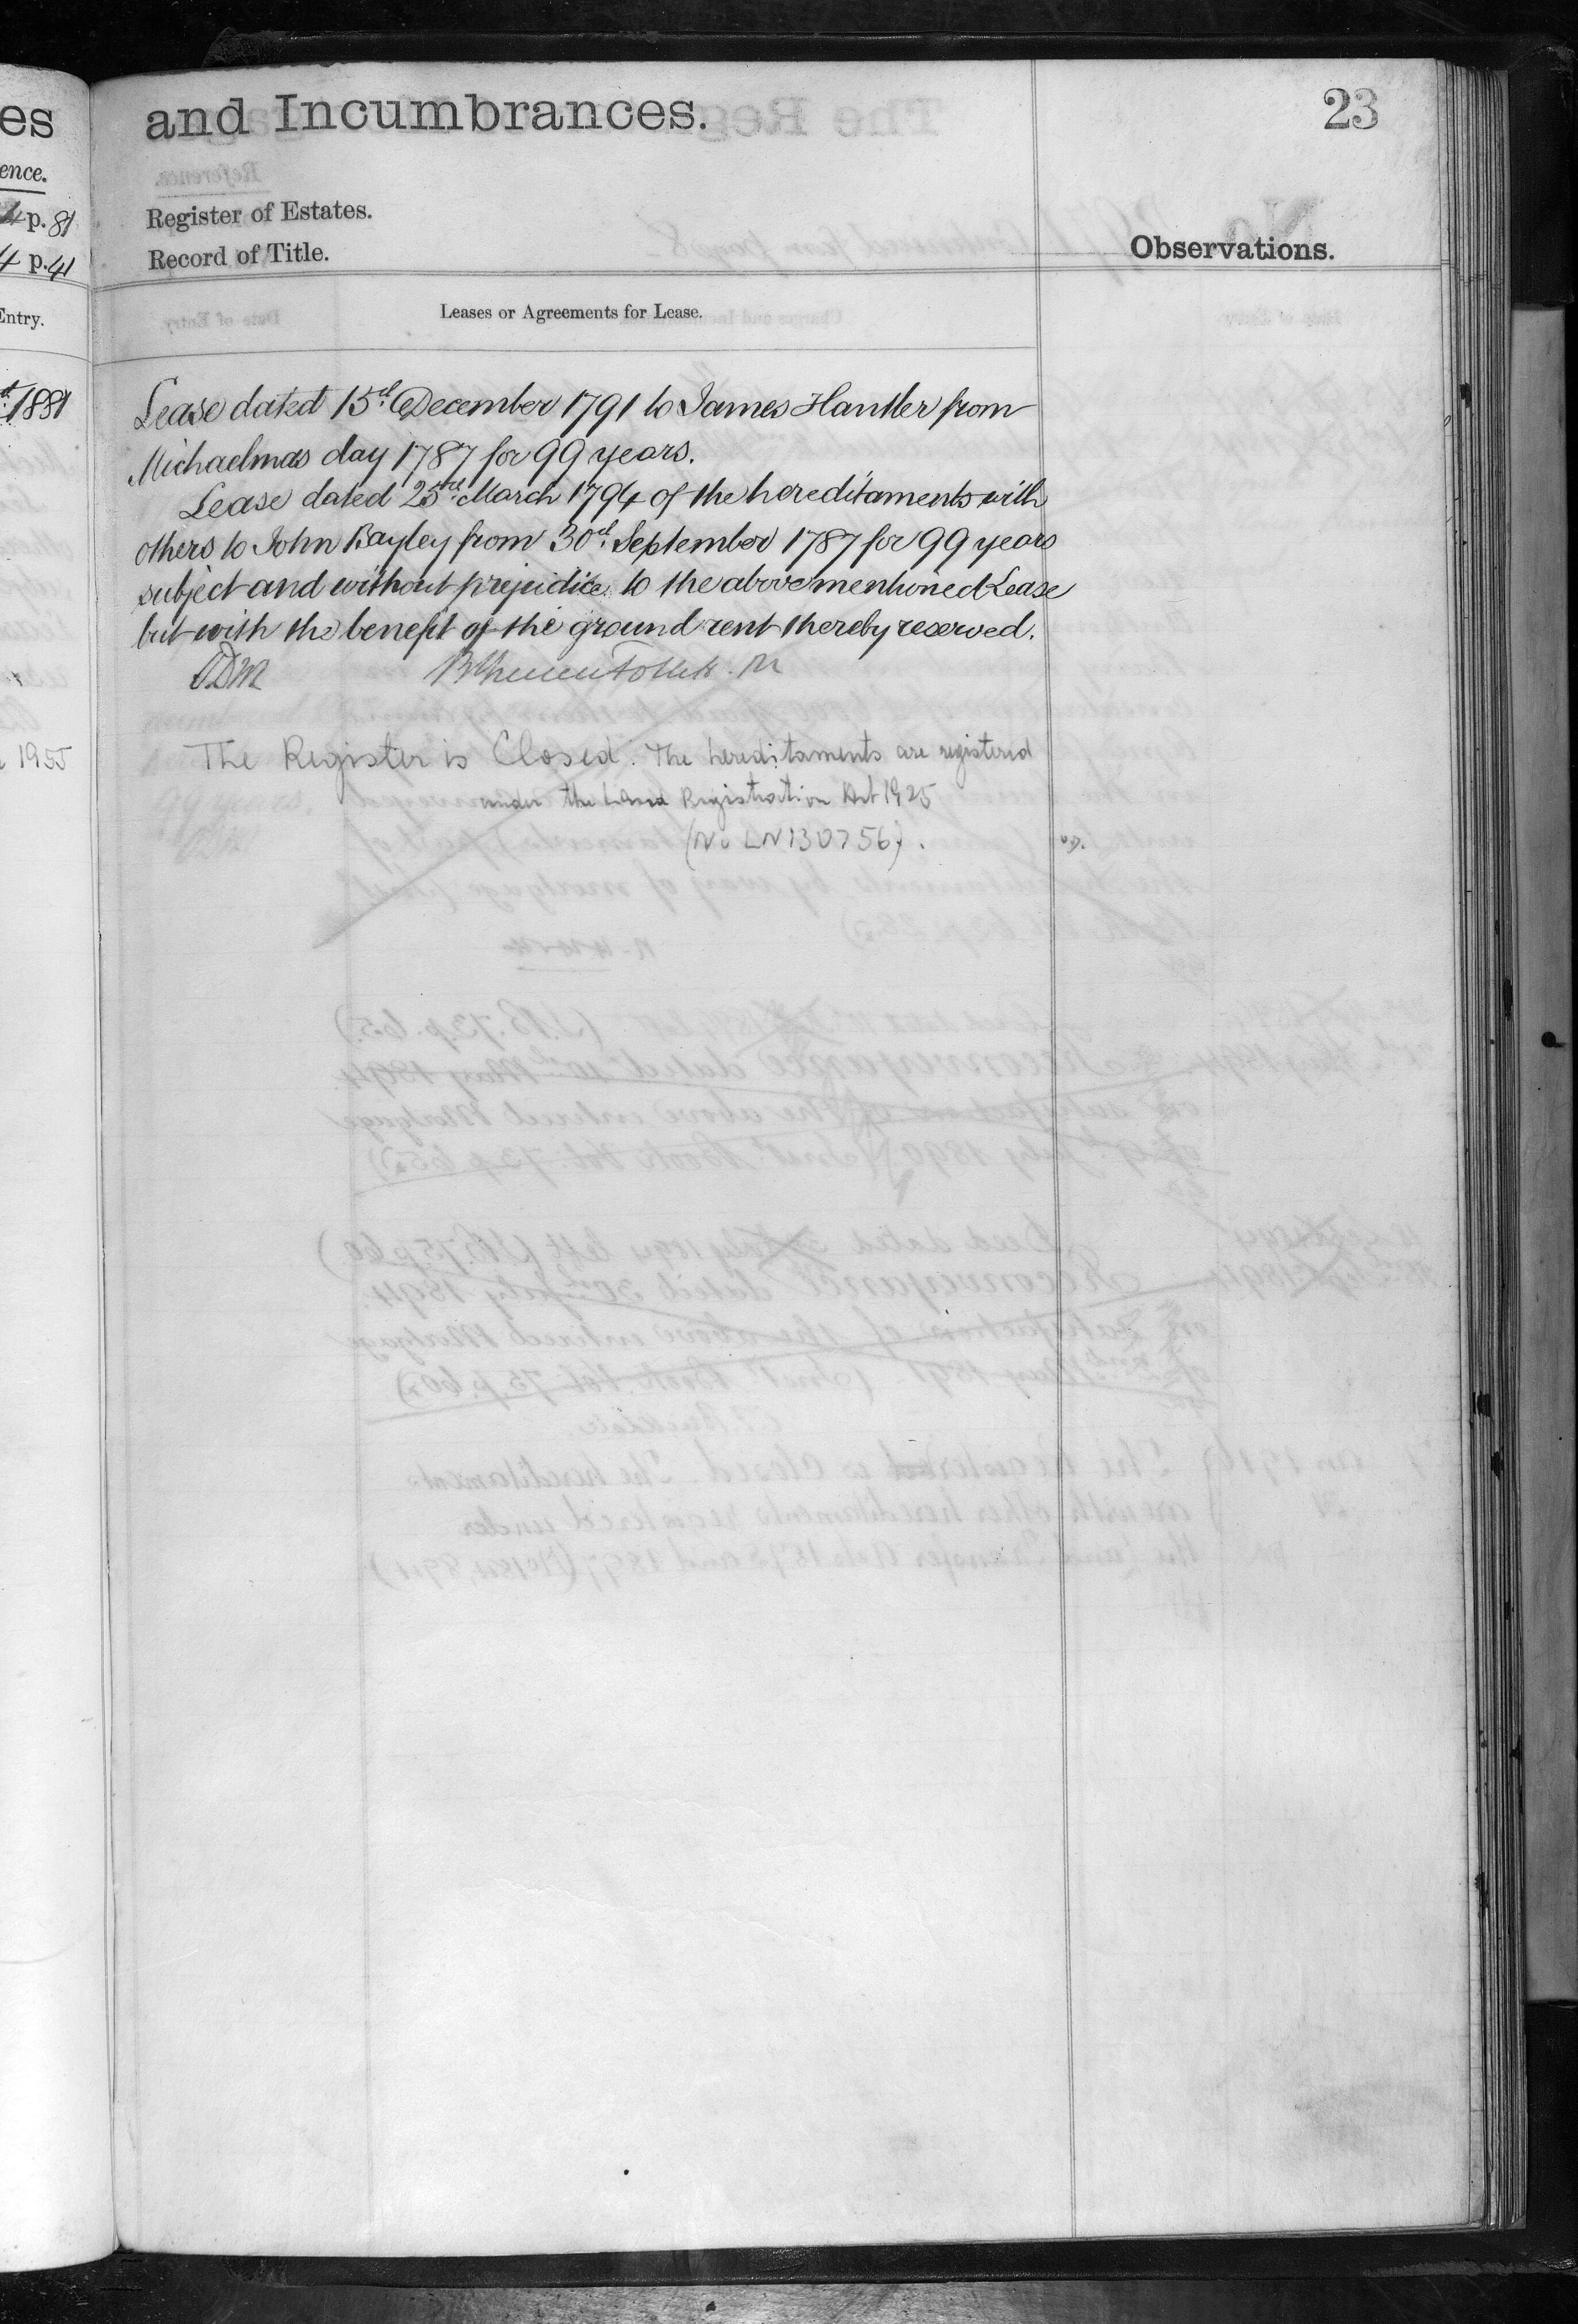 es
ence.
4 p. 81
4 p. 41
Entry.
1881
1955
and Incumbrances.
23
Register of Estates.
Record of Title.
Observations.
Leases or Agreements for Lease.
Lease dated 15th December 1791 to James Hantler from
Michaelmas day 1787 for 99 years.
Lease dated 25th March 1794 of the hereditaments with
others to John Bayley from 30th September 1787 for 99 years
subject and without prejudice to the abovementioned Lease
but with the benefit of the ground rent thereby reserved.
The Register is Closed. The hereditaments are registered
under the Land Registration Act 1925
(No LN130756).